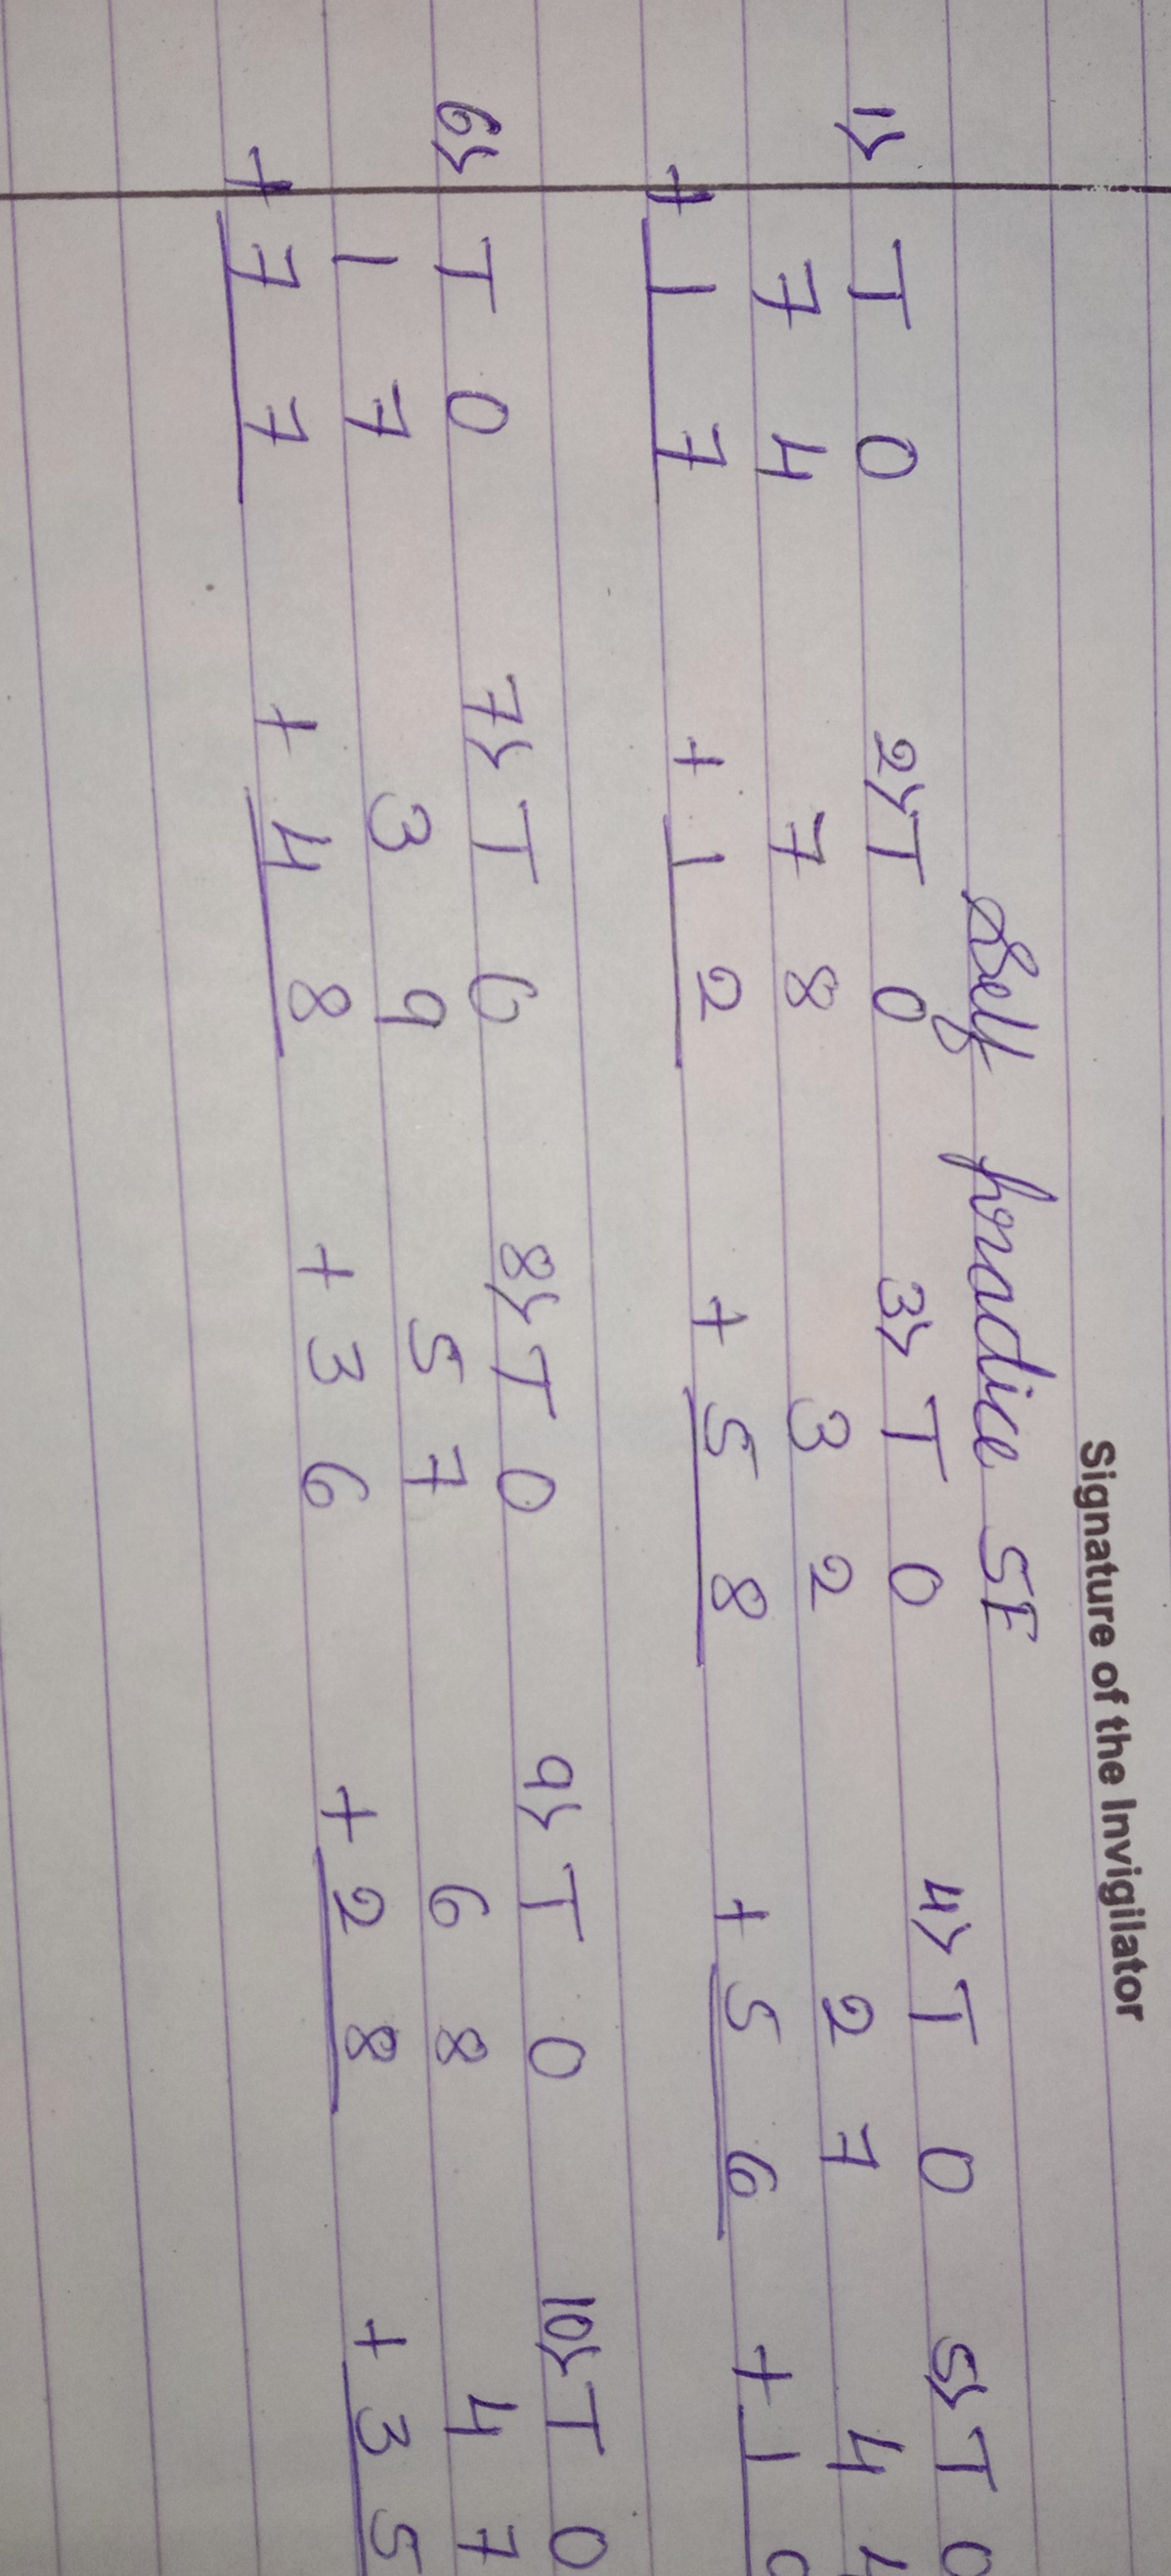 Signature of the Invigilator
Self practice SF
1> T O 2> T O 3> T O 4> T O 5> T O
7 4 7 8 3 2 2 7 4
+ 1 7 + 1 2 + 5 8 + 5 6 + 1
6> T O 7> T O 8> T O 9> T O 10> T O
1 7 3 9 5 7 6 8 4 7
+ 7 7 + 4 8 + 3 6 + 2 8 + 3 5